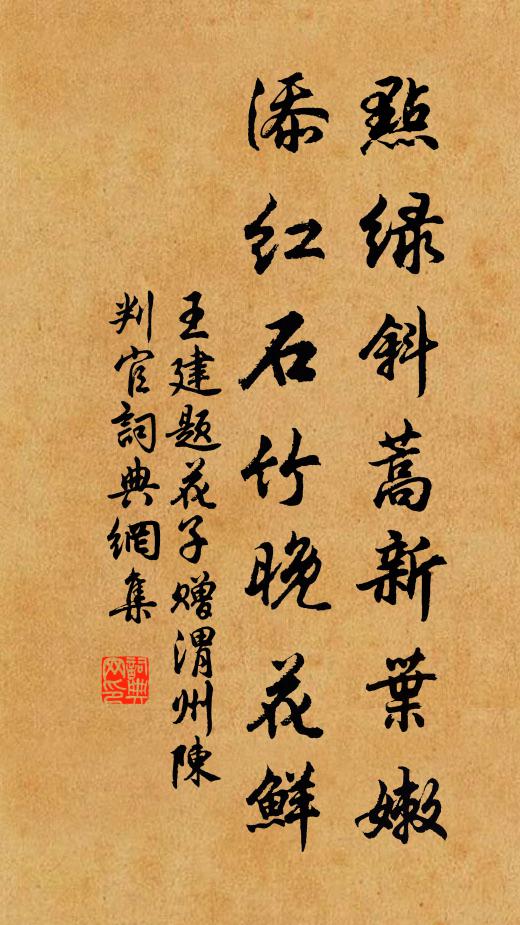 點綠斜蒿新葉嫩
添紅石竹晚花鮮
王建題花子贈渭州陳
判官詞典網集
詞典网印